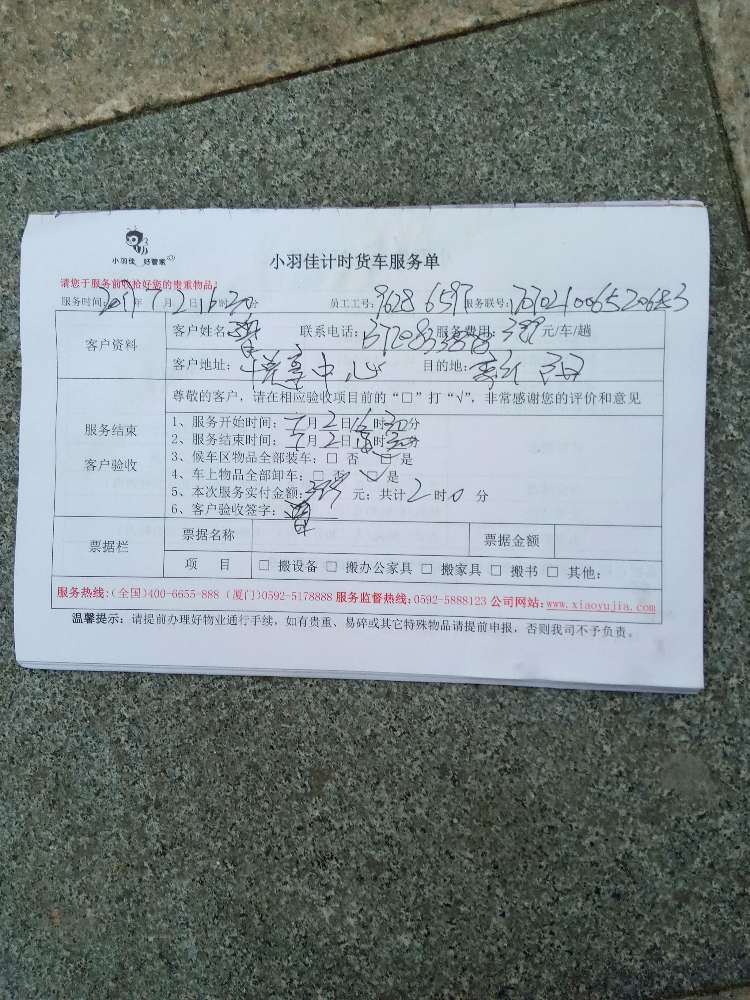 小羽佳 好管家
小羽佳计时货车服务单
请您于服务前收拾好您的贵重物品!
服务时间: 年7月2日16时30分 员工工号:9628 6597 服务联号:
客户资料 客户姓名: 联系电话: 服务费用:399元/车/趟
客户地址:悦享中心 目的地:
服务结束 客户验收 尊敬的客户,请在相应验收项目前的“□”打“√”,非常感谢您的评价和意见
1、服务开始时间:7月2日16时30分
2、服务结束时间:7月2日 时30分
3、候车区物品全部装车:□ 否 □ 是
4、车上物品全部卸车:□ 否 □ 是
5、本次服务实付金额: 元;共计2时0分
6、客户验收签字:
票据栏 票据名称 票据金额
项 目 □ 搬设备 □ 搬办公家具 □ 搬家具 □ 搬书 □ 其他:
服务热线:(全国)400-6655-888 (厦门)0592-5178888 服务监督热线:0592-5888123 公司网站:www.xiaoyujia.com
温馨提示:请提前办理好物业通行手续,如有贵重、易碎或其它特殊物品请提前申报,否则我司不予负责。